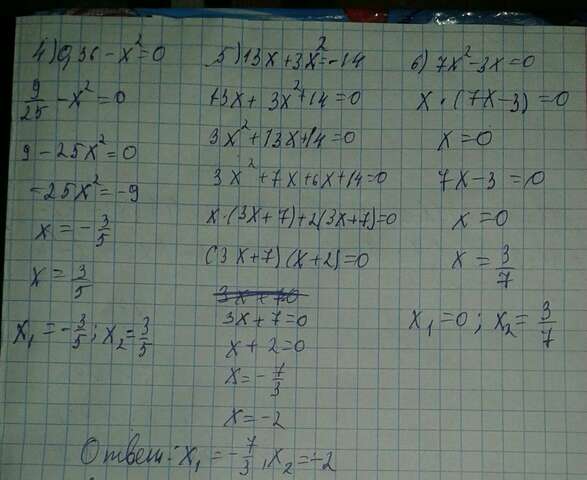 4) 0,36 - x² = 0
9/25 - x² = 0
9 - 25x² = 0
-25x² = -9
x = - 3/5
x = 3/5
x₁ = - 3/5; x₂ = 3/5
5) 13x + 3x² = -14
13x + 3x² + 14 = 0
3x² + 13x + 14 = 0
3x² + 7x + 6x + 14 = 0
x · (3x + 7) + 2(3x + 7) = 0
(3x + 7) (x + 2) = 0
3x + 7 = 0
x + 2 = 0
x = - 7/3
x = -2
Ответ: x₁ = - 7/3, x₂ = -2
6) 7x² - 3x = 0
x · (7x - 3) = 0
x = 0
7x - 3 = 0
x = 0
x = 3/7
x₁ = 0; x₂ = 3/7